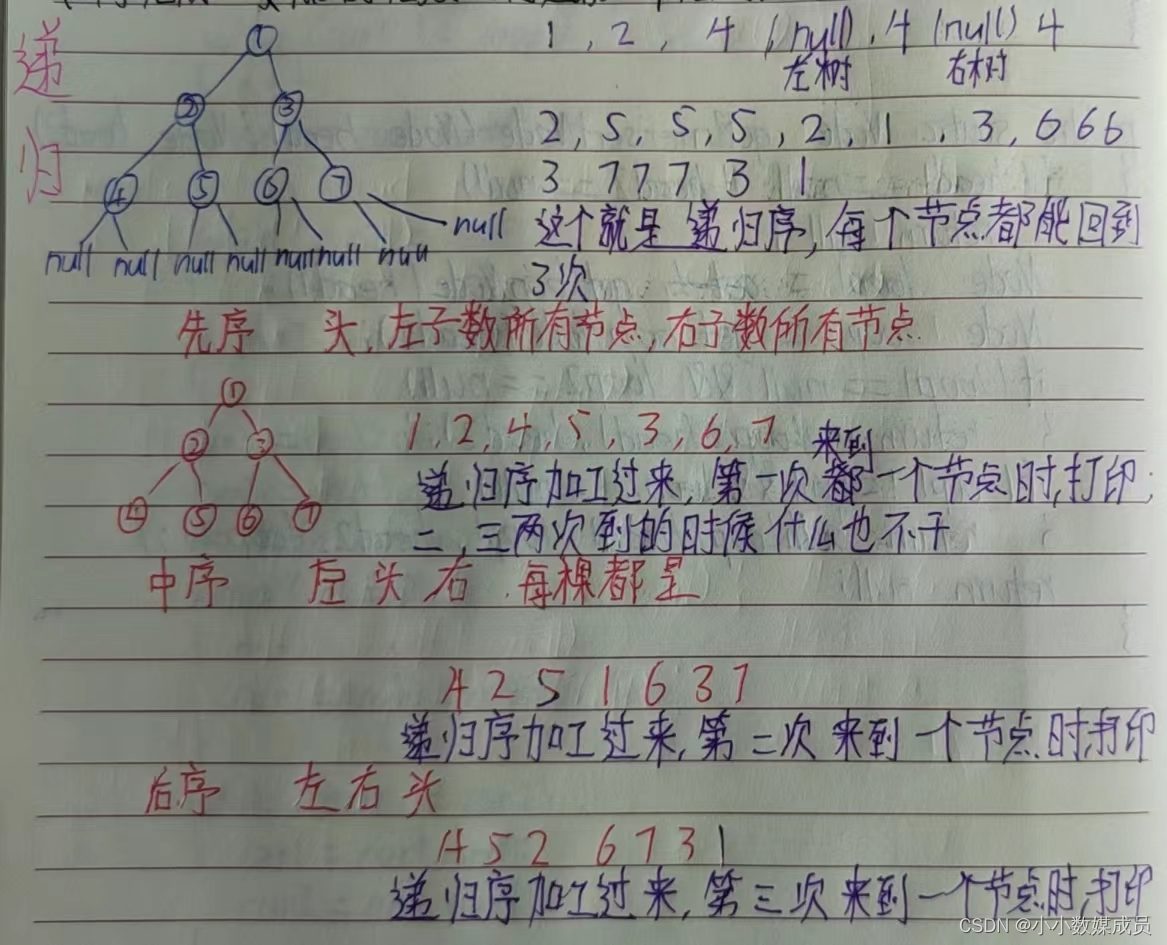 递归
1
1, 2, 4 (null), 4 (null) 4
左树 右树
2 3
2, 5, 5, 5, 2, 1, 3, 6 6 6
4 5 6 7
3 7 7 7 3 1
null 这个就是 递归序, 每个节点都能回到
null null null null null null null
3次
先序 头, 左子数所有节点, 右子数所有节点
1
1, 2, 4, 5, 3, 6, 7
2 3
来到
递归序加工过来, 第一次都一个节点时,打印;
4 5 6 7
二, 三两次到的时候什么也不干
中序 左 头 右 每棵都是
4 2 5 1 6 3 7
递归序加工过来, 第二次 来到 一个节点时,打印
后序 左 右 头
4 5 2 6 7 3 1
递归序加工过来, 第三次 来到一个节点时,打印
CSDN @小小数媒成员